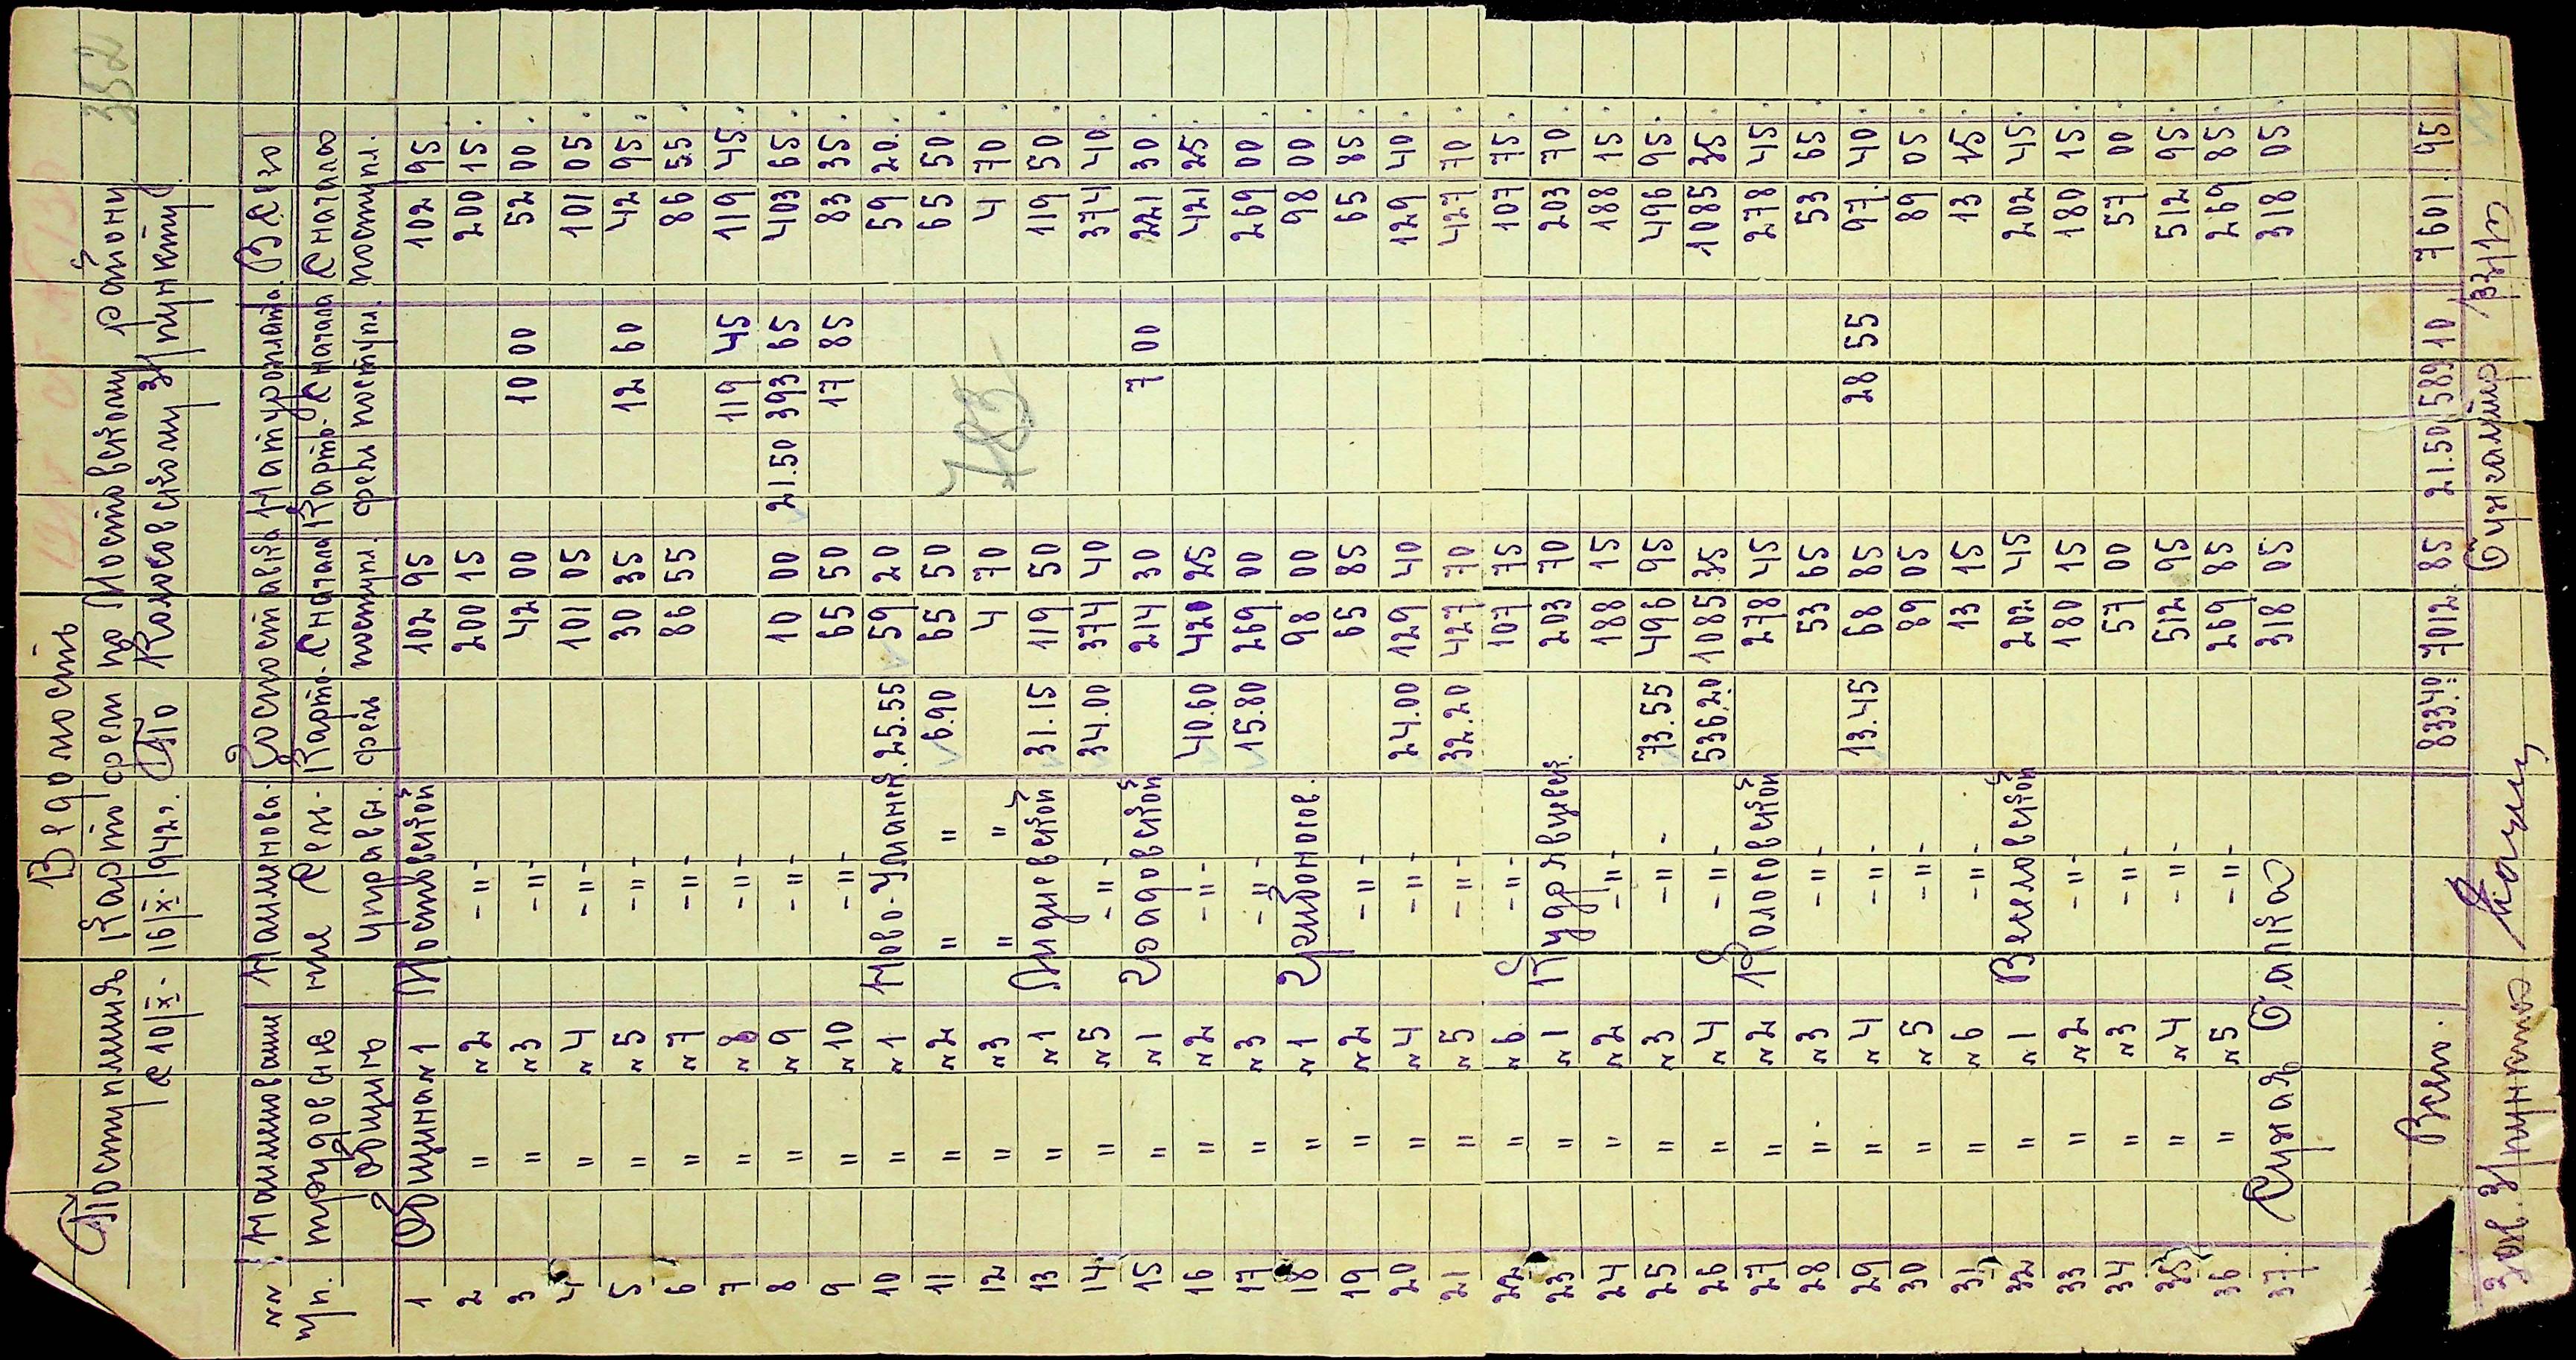 352
Ведомость
Поступления картофеля по Мостовскому району
с 10/X - 16/X - 1942 г. По Колосовскому З/пункту
№№ п/п. Наименовани трудовых общин Наименова- ние Сель- управы. Госпоставка Натуроплата Всего
Карто- фель С начала поступл. Карто- фель С начала поступл. С начало поступл.
1 Община №1 Мостовской 102 95 102 95
2 " №2 -"- 200 15 200 15
3 " №3 -"- 42 00 10 00 52 00
4 " №4 -"- 101 05 101 05
5 " №5 -"- 30 35 12 60 42 95
6 " №7 -"- 86 55 86 55
7 " №8 -"- 119 45 119 45
8 " №9 -"- 10 00 21.50 393 65 403 65
9 " №10 -"- 65 50 17 85 83 35
10 " №1 Ново-Уманск. 25.55 59 20 59 20
11 " №2 " " 6.90 65 50 65 50
12 " №3 " " 4 70 4 70
13 " №1 Лидиевской 31.15 119 50 119 50
14 " №5 -"- 34.00 374 40 374 40
15 " №1 214 30 7 00 221 30
16 " №2 -"- 40.60 420 25 421 25
17 " №3 -"- 15.80 269 00 269 00
18 " №1 98 00 98 00
19 " №2 -"- 65 85 65 85
20 " №4 -"- 24.00 129 40 129 40
21 " №5 -"- 32.20 427 70 427 70
22 " №6 -"- 107 75 107 75
23 " №1 Кудрявцевск. 203 70 203 70
24 " №2 -"- 188 15 188 15
25 " №3 -"- 73.55 496 95 496 95
26 " №4 -"- 536.20 1085 35 1085 35
27 " №2 Колосовской 278 45 278 45
28 " №3 -"- 53 65 53 65
29 " №4 -"- 13.45 68 85 28 55 97 40
30 " №5 -"- 89 05 89 05
31 " №6 -"- 13 15 13 15
32 " №1 Веселовской 202 45 202 45
33 " №2 -"- 180 15 180 15
34 " №3 -"- 57 00 57 00
35 " №4 -"- 512 95 512 95
36 " №5 -"- 269 85 269 85
37. 318 05 318 05
Всего. 833.40 7012 85 21.50 589 10 7601 95
Зав. З/пункта